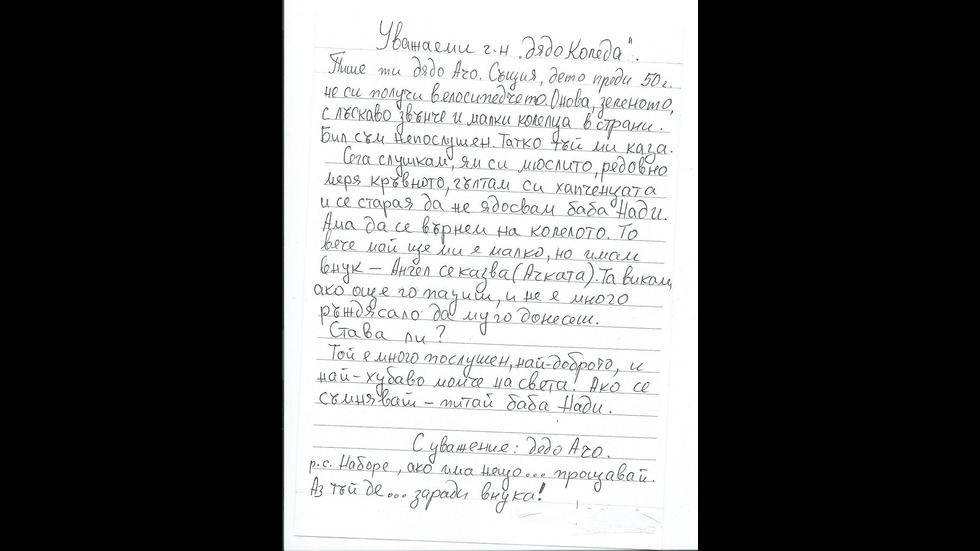 Уважаеми г-н „Дядо Коледа".
Пише ти дядо Ачо. Същия, дето преди 50 г.
не си получи велосипедчето. Онова, зеленото,
с лъскаво звънче и малки колелца в страни.
Бил съм непослушен. Татко тъй ми каза.
Сега слушкам, ям си мюслито, редовно
меря кръвното, гълтам си хапченцата
и се старая да не ядосвам баба Нади.
Ама да се върнем на колелото. То
вече май ще ми е малко, но имам
внук – Ангел се казва (Ачката). Та викам,
ако още го пазиш, и не е много
ръждясало да му го донесеш.
Става ли?
Той е много послушен, най-доброто, и
най-хубаво момче на света! Ако се
съмняваш – питай баба Нади.
С уважение: дедо Ачо.
p.s. Наборе, ако има нещо... прощавай.
Аз тъй де... заради внука!